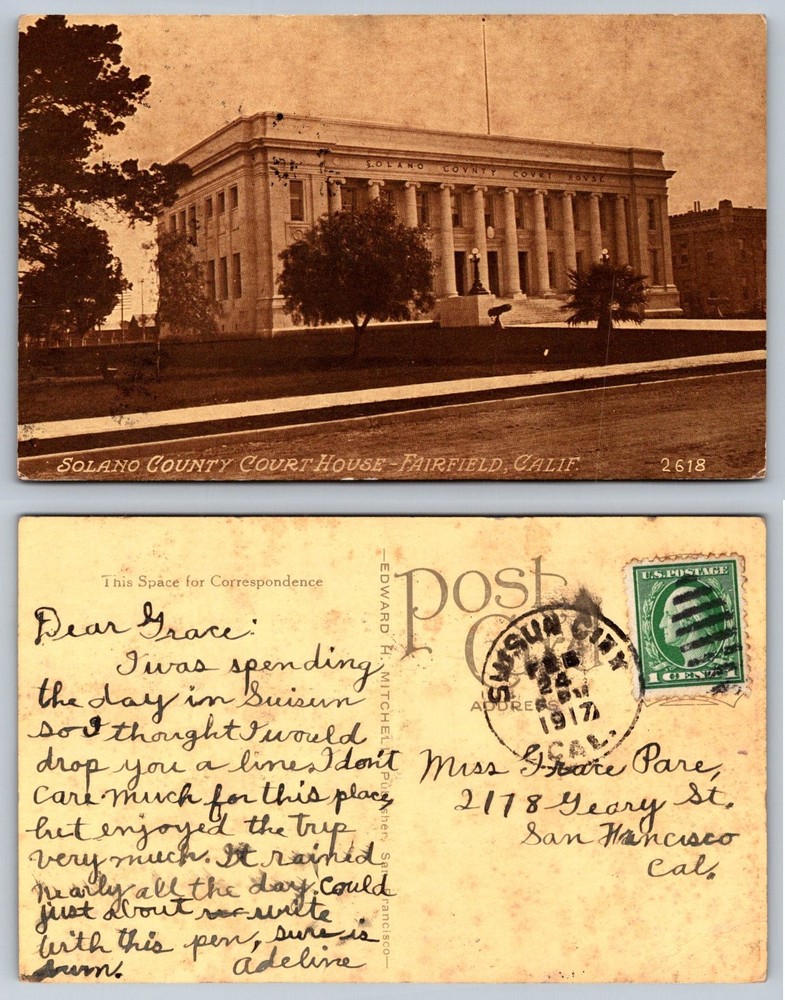 SOLANO COUNTY COURT HOUSE
SOLANO COUNTY COURT HOUSE - FAIRFIELD, CALIF.
2618
This Space for Correspondence
Dear Grace:
I was spending
the day in Suisun
so I thought I would
drop you a line. I don't
care much for this place
but enjoyed the trip
very much. It rained
nearly all the day. Could
just about write
with this pen, sure is
bum.
Adeline
—EDWARD H. MITCHELL, Publisher, San Francisco—
post
Card
ADDRESS
SUISUN CITY
FEB
24
PM
1917
CAL.
U.S. POSTAGE
1 CENT 1
Miss Grace Pare,
2178 Geary St.
San Francisco
Cal.